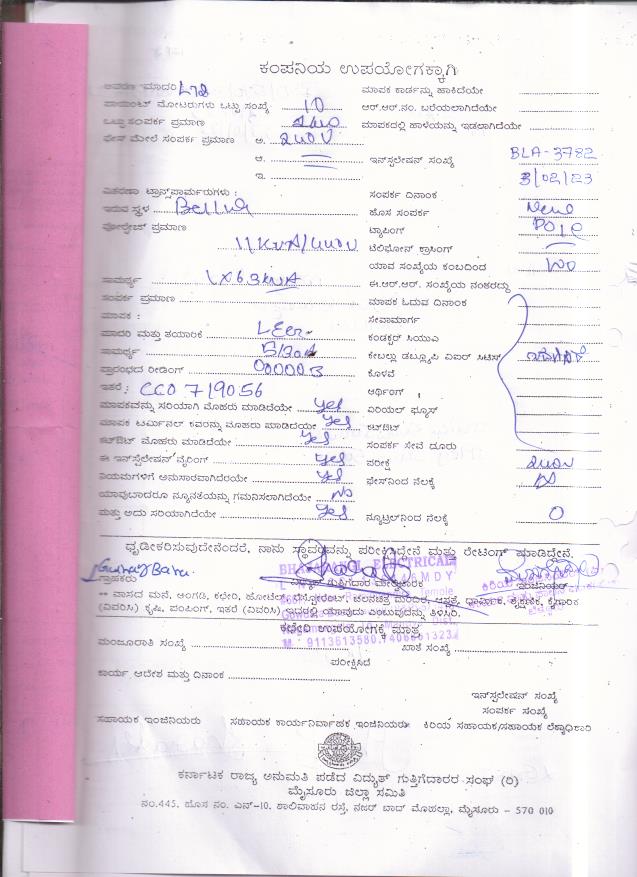 ಕಂಪನಿಯ ಉಪಯೋಗಕ್ಕಾಗಿ
ಮಾಪಕ ಕಾರ್ಡನ್ನು ಹಾಕಿದೆಯೇ
ಪಾಯಿಂಟ್ ಮೋಟರುಗಳು ಒಟ್ಟು ಸಂಖ್ಯೆ 10 ಆರ್.ಆರ್.ನಂ. ಬರೆಯಲಾಗಿದೆಯೇ
ಒಟ್ಟು ಸಂಪರ್ಕ ಪ್ರಮಾಣ ಮಾಪಕದಲ್ಲಿ ಹಾಳೆಯನ್ನು ಇಡಲಾಗಿದೆಯೇ
ಫೇಸ್ ಮೇಲೆ ಸಂಪರ್ಕ ಪ್ರಮಾಣ ಅ. 240V
ಆ. ಇನ್‌ಸ್ಟಲೇಷನ್ ಸಂಖ್ಯೆ BLA-3782
ಇ. 3/02/23
ವಿತರಣಾ ಟ್ರಾನ್ಸ್‌ಫಾರ್ಮರುಗಳು : ಸಂಪರ್ಕ ದಿನಾಂಕ
ಇರುವ ಸ್ಥಳ Bellur ಹೊಸ ಸಂಪರ್ಕ New
ವೋಲ್ಟೇಜ್ ಪ್ರಮಾಣ ಟ್ಯಾಪಿಂಗ್ Pole
11KVA/440V ಟೆಲಿಫೋನ್ ಕ್ರಾಸಿಂಗ್
ಯಾವ ಸಂಖ್ಯೆಯ ಕಂಬದಿಂದ
ಸಾಮರ್ಥ್ಯ 1X63KVA ಈ.ಆರ್.ಆರ್. ಸಂಖ್ಯೆಯ ನಂತರದ್ದು
ಸಂಪರ್ಕ ಪ್ರಮಾಣ ಮಾಪಕ ಓದುವ ದಿನಾಂಕ
ಮಾಪಕ : ಸೇವಾಮಾರ್ಗ
ಮಾದರಿ ಮತ್ತು ತಯಾರಿಕೆ ಕಂಡಕ್ಟರ್ ಸಿಯುಎ
ಸಾಮರ್ಥ್ಯ ಕೇಬಲ್ಲು ಡಬ್ಲ್ಯೂಪಿ ಎಐರ್ ಸಿಟಿಸ್
ಪ್ರಾರಂಭದ ರೀಡಿಂಗ್ ಕೊಳವೆ
ಇತರೆ : CCO 719056 ಅರ್ಥಿಂಗ್
ಮಾಪಕವನ್ನು ಸರಿಯಾಗಿ ಮೊಹರು ಮಾಡಿದೆಯೇ Yes ಏರಿಯಲ್ ಫ್ಯೂಸ್
ಮಾಪಕ ಟರ್ಮಿನಲ್ ಕವರನ್ನು ಮೊಹರು ಮಾಡಿದೆಯೇ Yes ಕಟ್‌ಔಟ್
ಕಟ್‌ಔಟ್ ಮೊಹರು ಮಾಡಿದೆಯೇ Yes ಸಂಪರ್ಕ ಸೇವೆ ದೂರು
ಈ ಇನ್‌ಸ್ಟಲೇಷನ್ ವೈರಿಂಗ್ Yes ಪರೀಕ್ಷೆ 240V
ನಿಯಮಗಳಿಗೆ ಅನುಸಾರವಾಗಿದೆಯೇ Yes ಫೇಸ್‌ನಿಂದ ನೆಲಕ್ಕೆ
ಯಾವುದಾದರೂ ನ್ಯೂನತೆಯನ್ನು ಗಮನಿಸಲಾಗಿದೆಯೇ No
ಮತ್ತು ಅದು ಸರಿಯಾಗಿದೆಯೇ Yes ನ್ಯೂಟ್ರಲ್‌ನಿಂದ ನೆಲಕ್ಕೆ 0
ಧೃಡೀಕರಿಸುವುದೇನೆಂದರೆ, ನಾನು ಸ್ಥಾವರವನ್ನು ಪರೀಕ್ಷಿಸಿದ್ದೇನೆ ಮತ್ತು ರೇಟಿಂಗ್ ಮಾಡಿದ್ದೇನೆ.
ಗ್ರಾಹಕರು ವಿದ್ಯುತ್ ಗುತ್ತಿಗೆದಾರ ಮೇಲ್ವಿಚಾರಕ ಇಂಜಿನಿಯರ್
** ವಾಸದ ಮನೆ, ಅಂಗಡಿ, ಕಛೇರಿ, ಹೋಟೆಲ್, ರೆಸ್ಟೋರೆಂಟ್, ಚಲನಚಿತ್ರ ಮಂದಿರ, ಆಸ್ಪತ್ರೆ, ಧಾರ್ಮಿಕ, ಶೈಕ್ಷಣಿಕ, ಕೈಗಾರಿಕ
(ವಿವರಿಸಿ) ಕೃಷಿ, ಪಂಪಿಂಗ್, ಇತರೆ (ವಿವರಿಸಿ) ಇವುದರಲ್ಲಿ ಯಾವುದು ಎಂಬುವುದನ್ನು ತಿಳಿಸಿರಿ.
ಕಛೇರಿ ಉಪಯೋಗಕ್ಕೆ ಮಾತ್ರ
M : 9113613580,7406661323
ಮಂಜೂರಾತಿ ಸಂಖ್ಯೆ ಖಾತೆ ಸಂಖ್ಯೆ
ಪರೀಕ್ಷಿಸಿದೆ
ಕಾರ್ಯ ಆದೇಶ ಮತ್ತು ದಿನಾಂಕ
ಇನ್‌ಸ್ಟಲೇಷನ್ ಸಂಖ್ಯೆ
ಸಂಪರ್ಕ ಸಂಖ್ಯೆ
ಸಹಾಯಕ ಇಂಜಿನಿಯರು ಸಹಾಯಕ ಕಾರ್ಯನಿರ್ವಾಹಕ ಇಂಜಿನಿಯರು ಕಿರಿಯ ಸಹಾಯಕ/ಸಹಾಯಕ ಲೆಕ್ಕಾಧಿಕಾರಿ
ಕರ್ನಾಟಕ ರಾಜ್ಯ ಅನುಮತಿ ಪಡೆದ ವಿದ್ಯುತ್ ಗುತ್ತಿಗೆದಾರರ ಸಂಘ (ರಿ)
ಮೈಸೂರು ಜಿಲ್ಲಾ ಸಮಿತಿ
ನಂ.445, ಹೊಸ ನಂ. ಎನ್-10, ಶಾಲಿವಾಹನ ರಸ್ತೆ, ನಜರ್ ಬಾದ್ ಮೊಹಲ್ಲಾ, ಮೈಸೂರು - 570 010